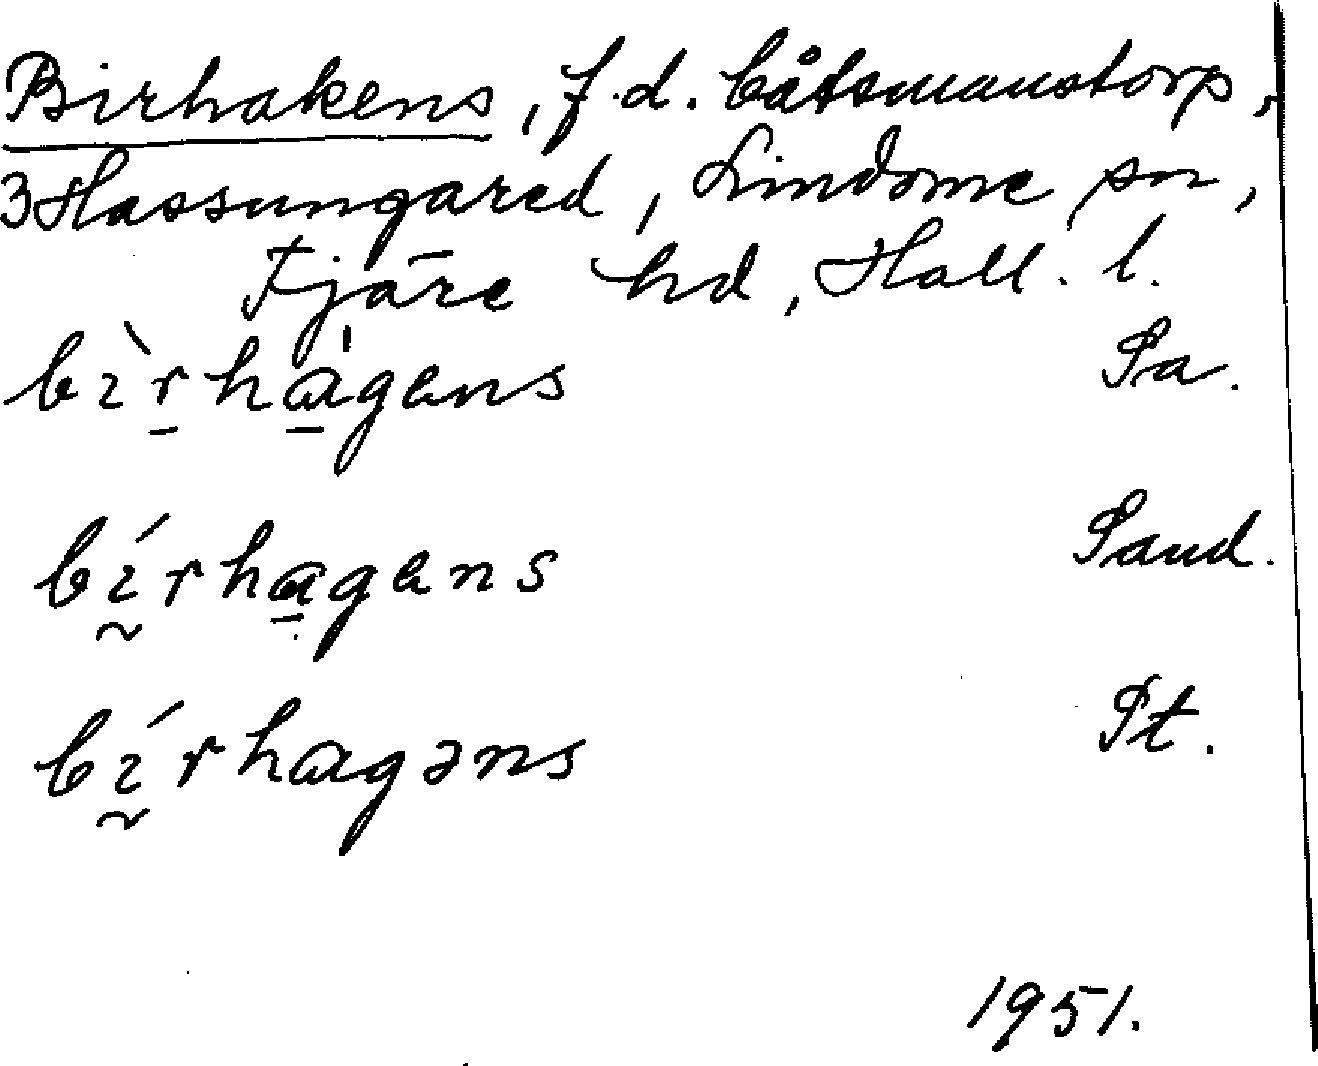 Birhakens, f.d. båtsmanstorp,
3 Hassungared, Lindome sn,
Fjäre hd, Hall. l.
bìrhàgens Sa.
bírhagens Sand.
bírhagəns St.
1951.